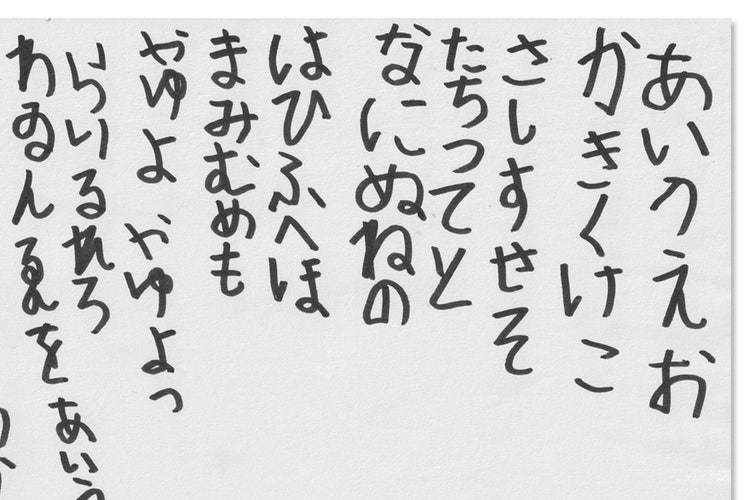 あいうえお
かきくけこ
さしすせそ
たちつてと
なにぬねの
はひふへほ
まみむめも
やゆよ ゃゅょっ
らりるれろ ぁぃぅ
わゐんゑを